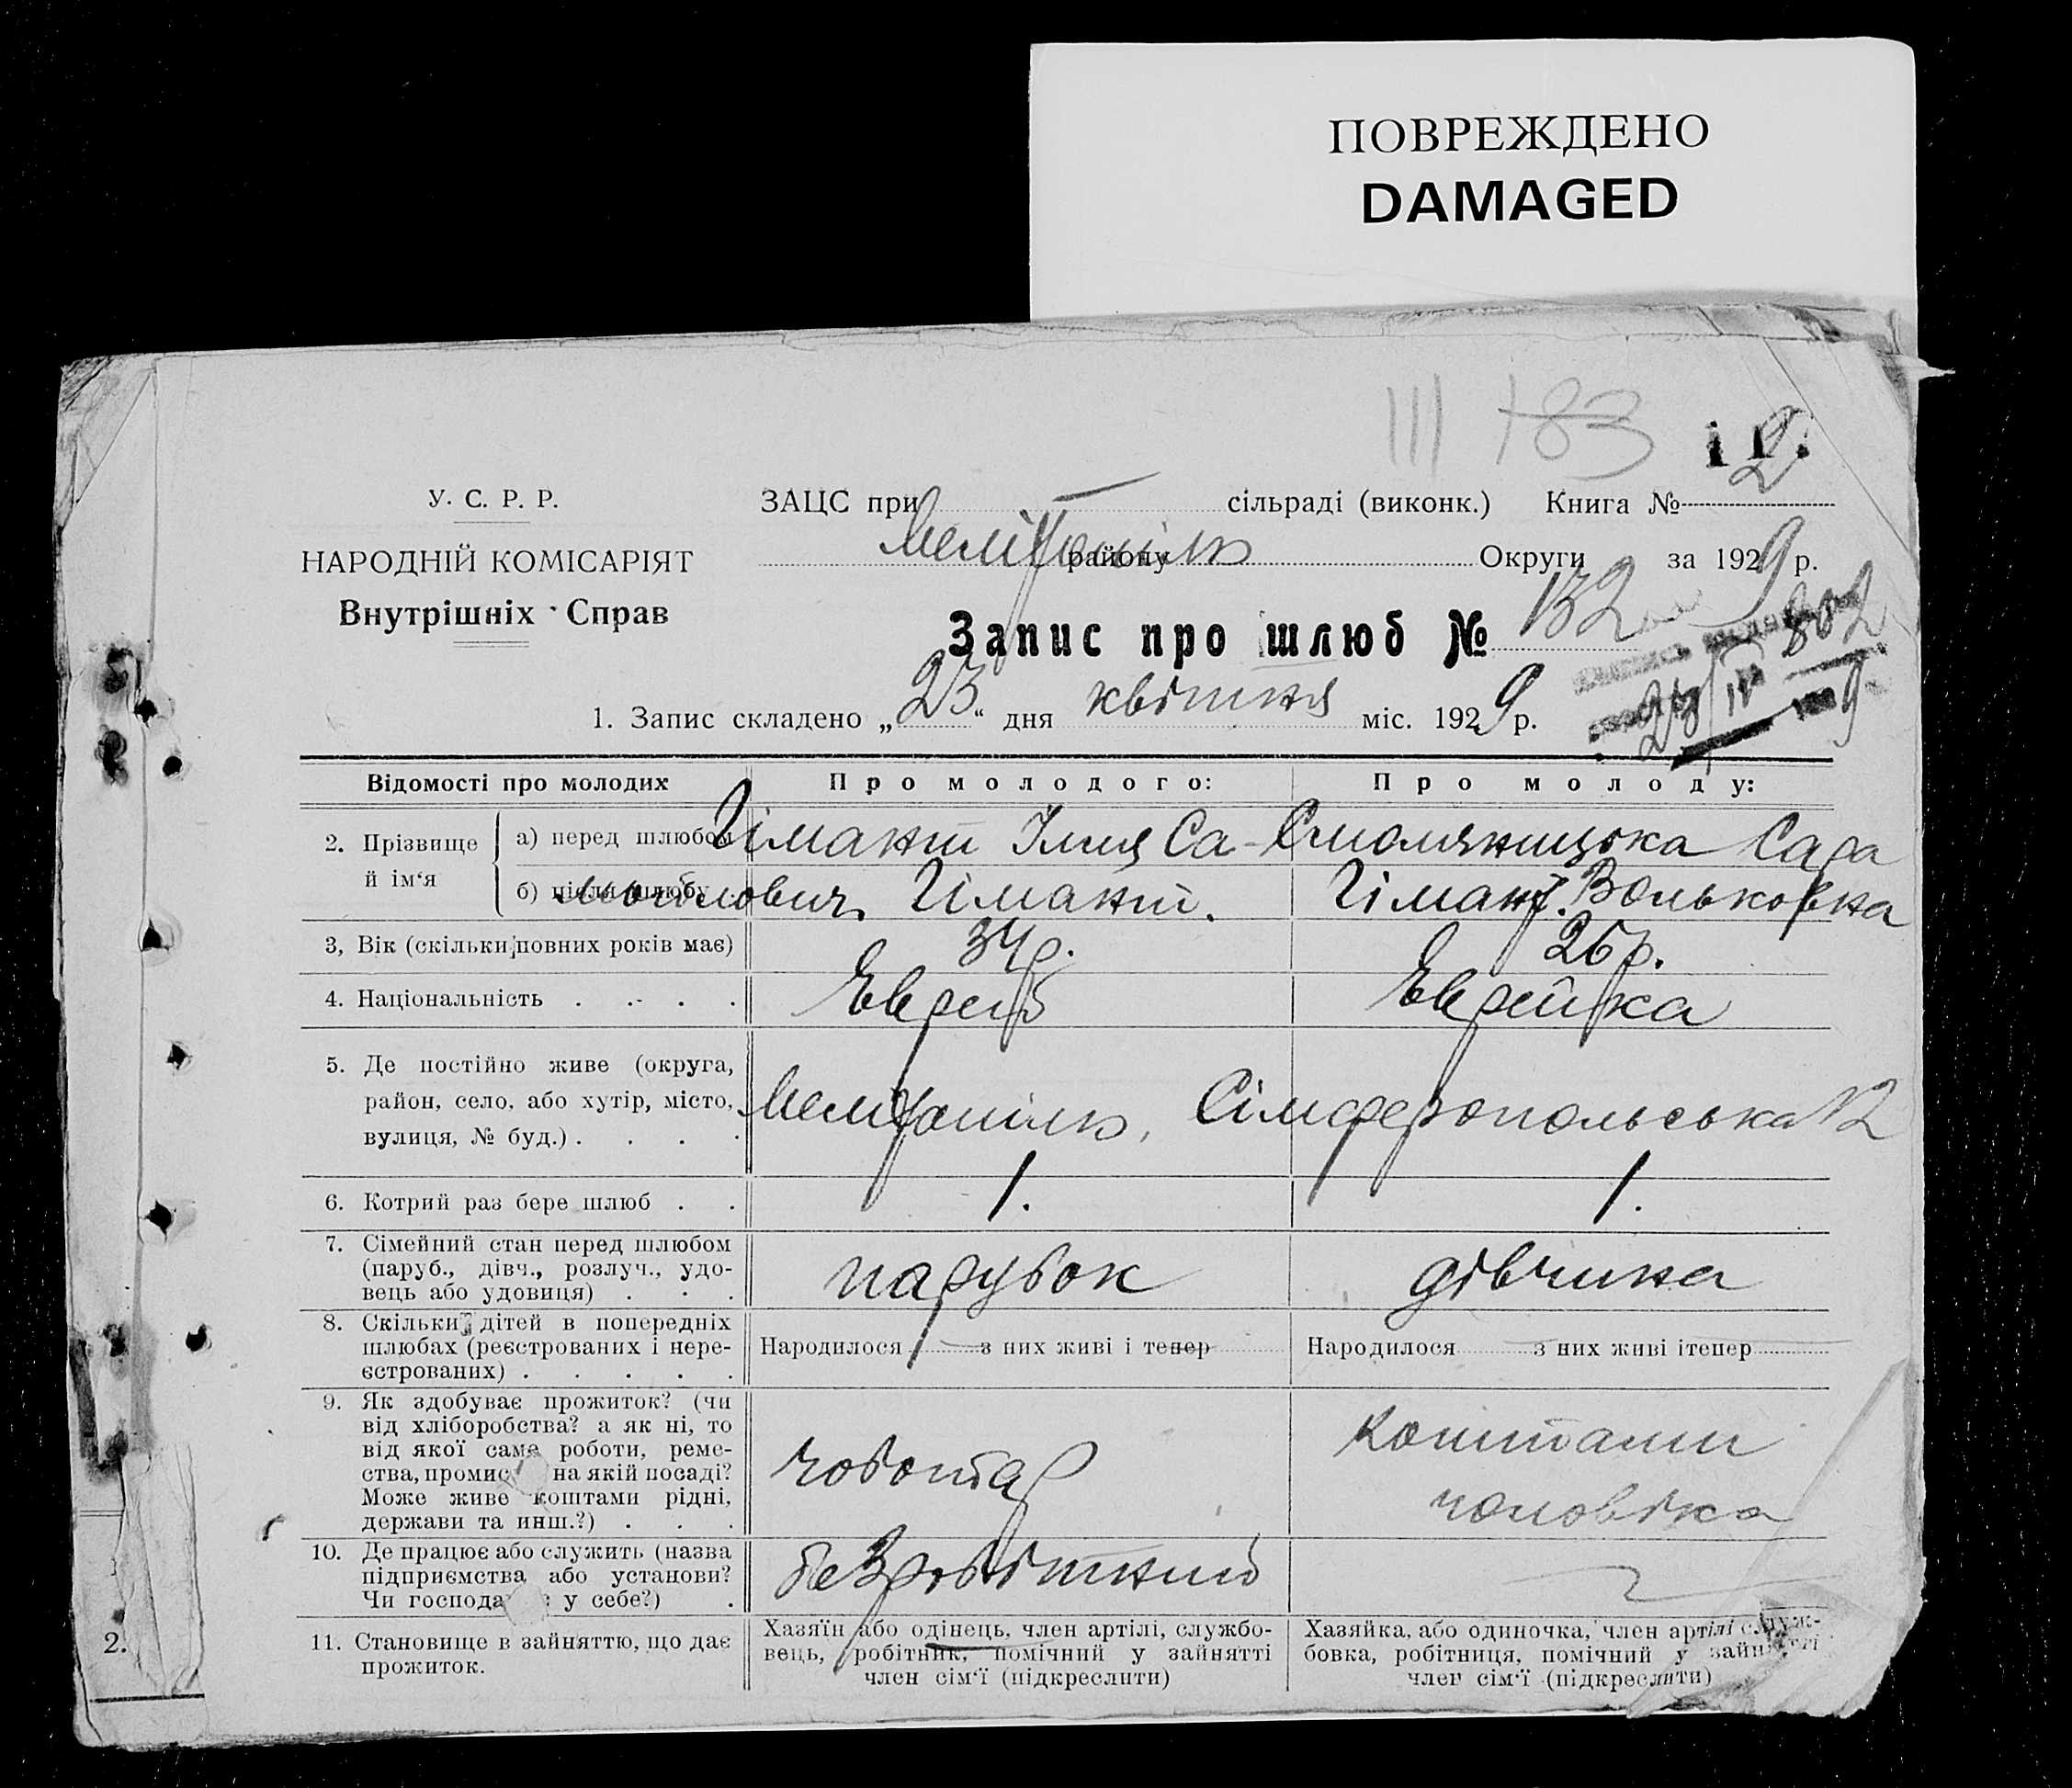 ПОВРЕЖДЕНО
DAMAGED
III 183
2
У. С. Р. Р.
НАРОДНІЙ КОМІСАРІЯТ
Внутрішніх Справ
ЗАЦС при сільраді (виконк.) Книга №
Мелітопіль району Округи за 1929 р.
Запис про шлюб № 132
802
23/IV 9
1. Запис складено „23“ дня квітня міс. 1929 р.
Відомості про молодих
Про молодого:
Про молоду:
2. Прізвище й ім‘я
а) перед шлюбом
Гімант Ілля Са-
Смоляницька Сара
б) після шлюбу
мойлович Гімант.
Гімант. Вольковна
3, Вік (скільки повних років має)
34 р.
26 р.
4. Національність . . . .
Еврей
Еврейка
5. Де постійно живе (округа,
район, село, або хутір, місто,
вулиця, № буд.) . . . .
Мелітопіль, Сімферопольська 12
6. Котрий раз бере шлюб . .
1.
1.
7. Сімейний стан перед шлюбом
(паруб., дівч., розлуч., удо-
вець або удовиця) . . .
парубок
дівчина
8. Скільки дітей в попередніх
шлюбах (реєстрованих і нере-
єстрованих) . . . . .
Народилося з них живі і тепер
Народилося з них живі ітепер
9. Як здобуває прожиток? (чи
від хліборобства? а як ні, то
від якої саме роботи, реме-
ства, промис на якій посаді?
Може живе коштами рідні,
держави та инш.?) . . .
чоботар
Коштами
чоловіка
10. Де працює або служить (назва
підприємства або установи?
Чи господа є у себе?) .
безробітний
11. Становище в зайняттю, що дає
прожиток.
Хазяїн або одінець, член артілі, службо-
вець, робітник, помічний у зайнятті
член сім‘ї (підкреслити)
Хазяйка, або одиночка, член артілі служ-
бовка, робітниця, помічний у зайнятті
член сім‘ї (підкреслити)
2.